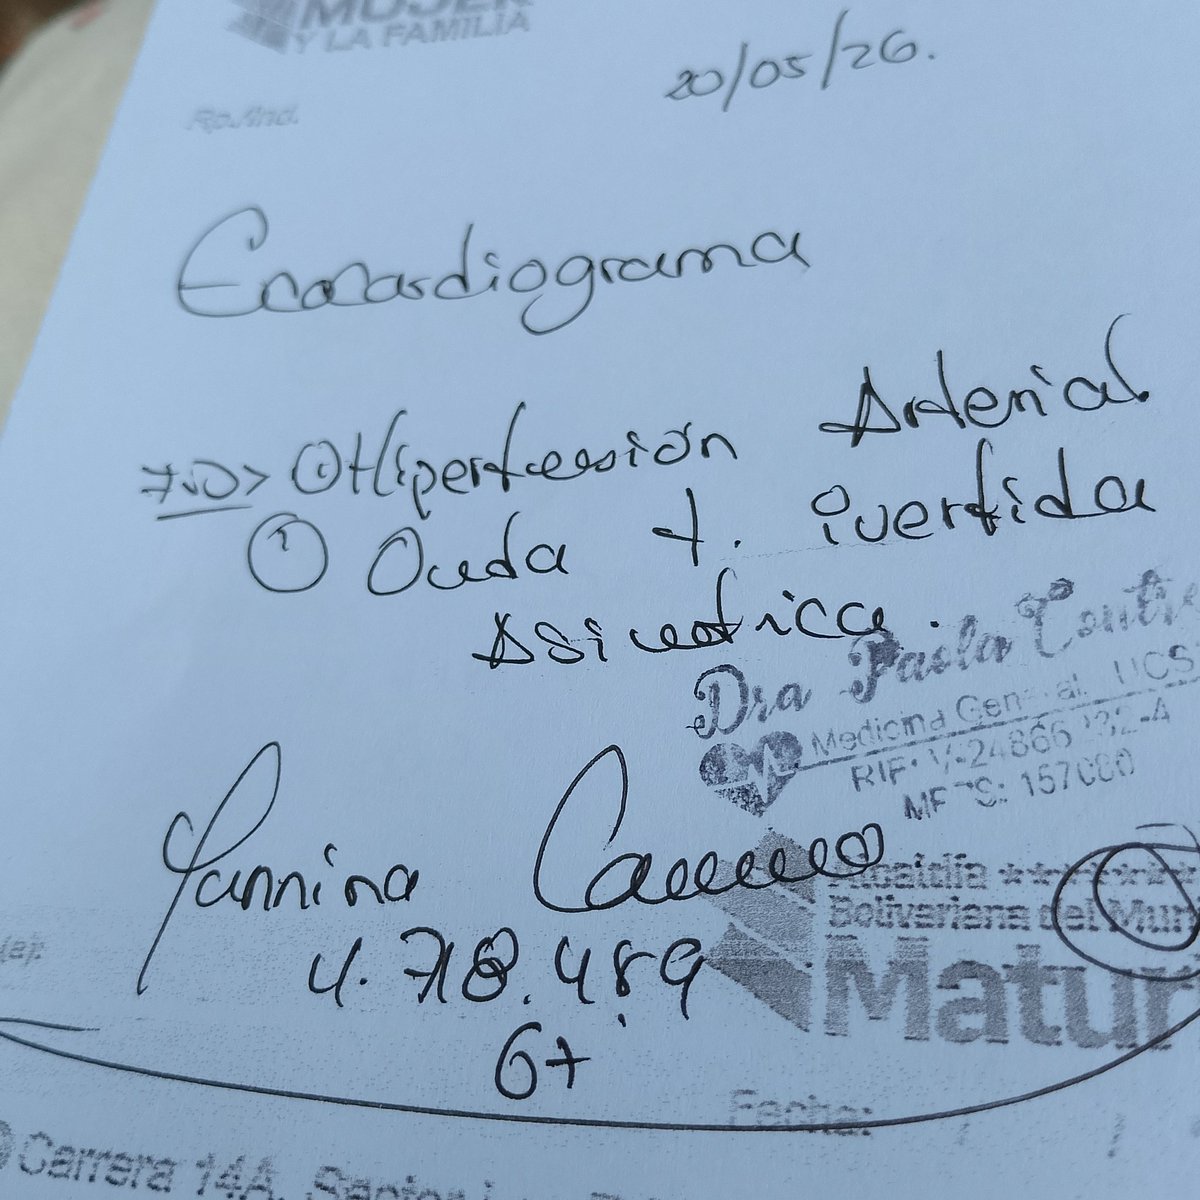 MUJER
Y LA FAMILIA
20/05/26.
Rp./Ind.
Ecocardiograma
Hipertensión Arterial
① Onda t. ivertida
Asimetrica.
Dra Paola
Medicina General. UCS
RIF: V-24866
157080
Yannina
4. 718.489
Alcaldía
Bolivariana del Mun
Matur
Fecha:
Carrera 14A,